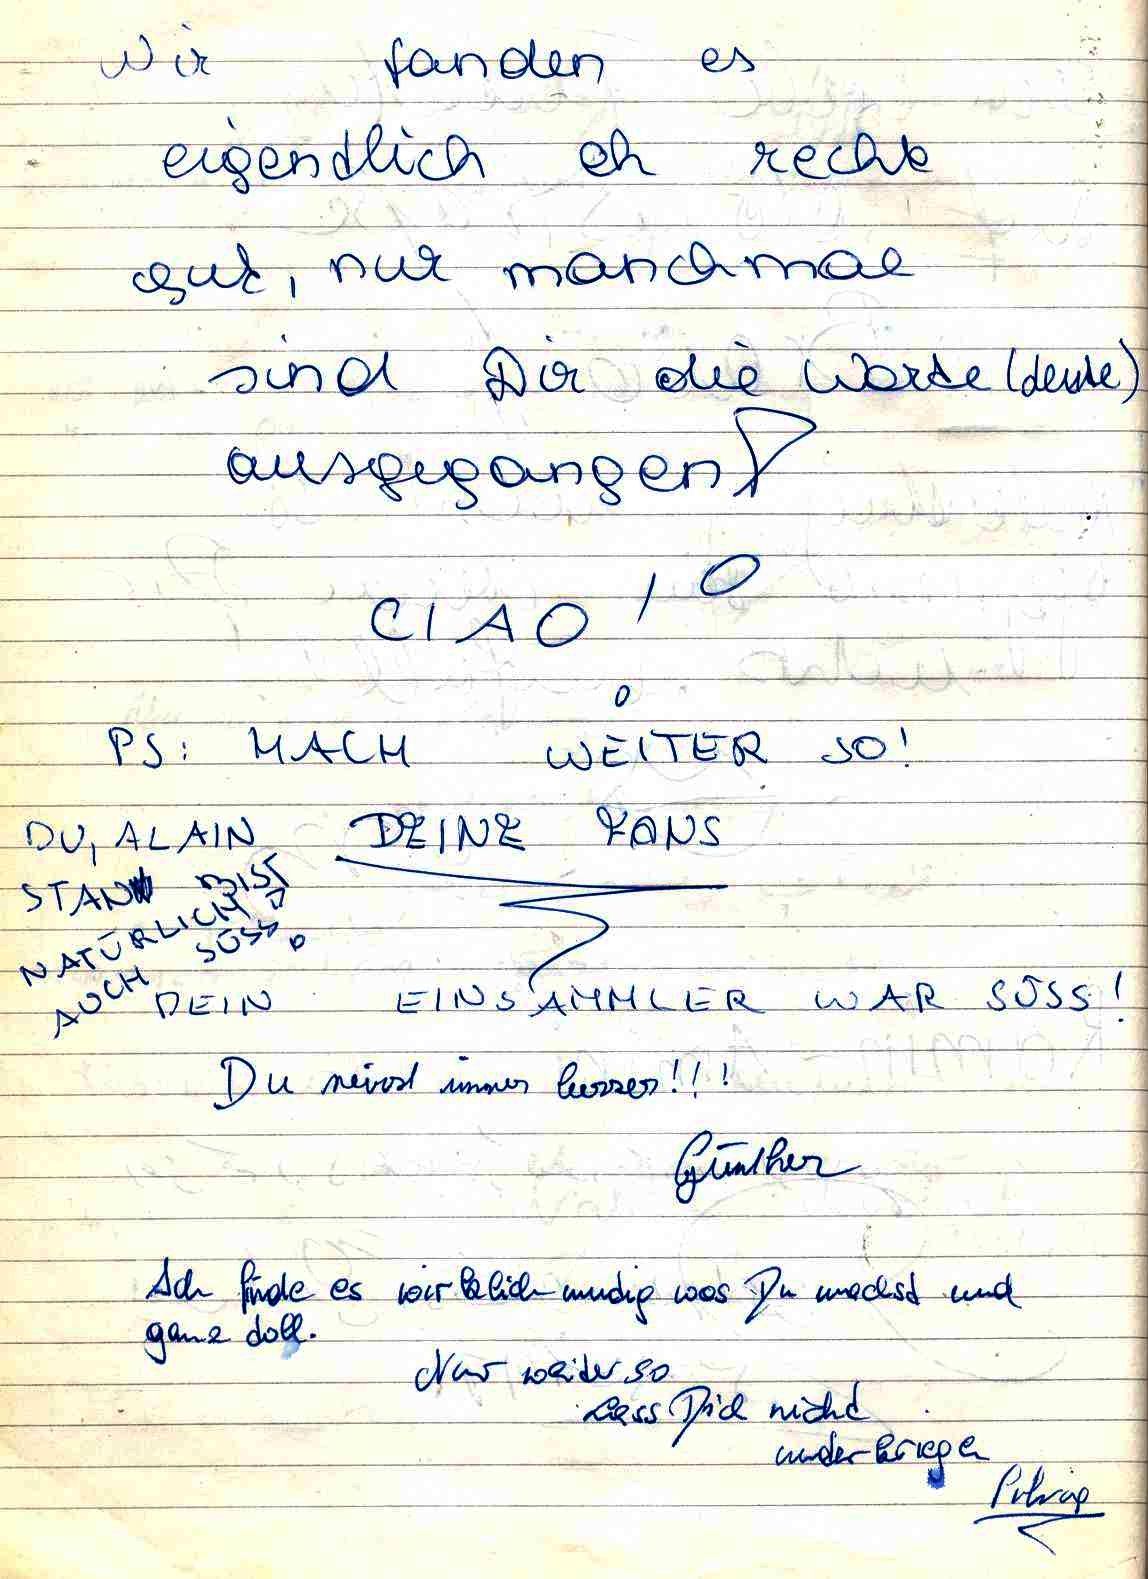 Wir fanden es
eigendlich eh recht
gut, nur manchmal
sind Dir die Worte (Leute)
ausgegangen!
CIAO!
PS: MACH WEITER SO!
DEINE FANS
DU, ALAIN
STAN BIST
NATÜRLICH
AUCH SÜSS!
DEIN EINSAMMLER WAR SÜSS!
Du wirst immer besser!!!
Günther
Ich finde es wirklich mudig was Du machst und
ganz doll.
Nur weiter so
Lass Dich nicht
underkriegen